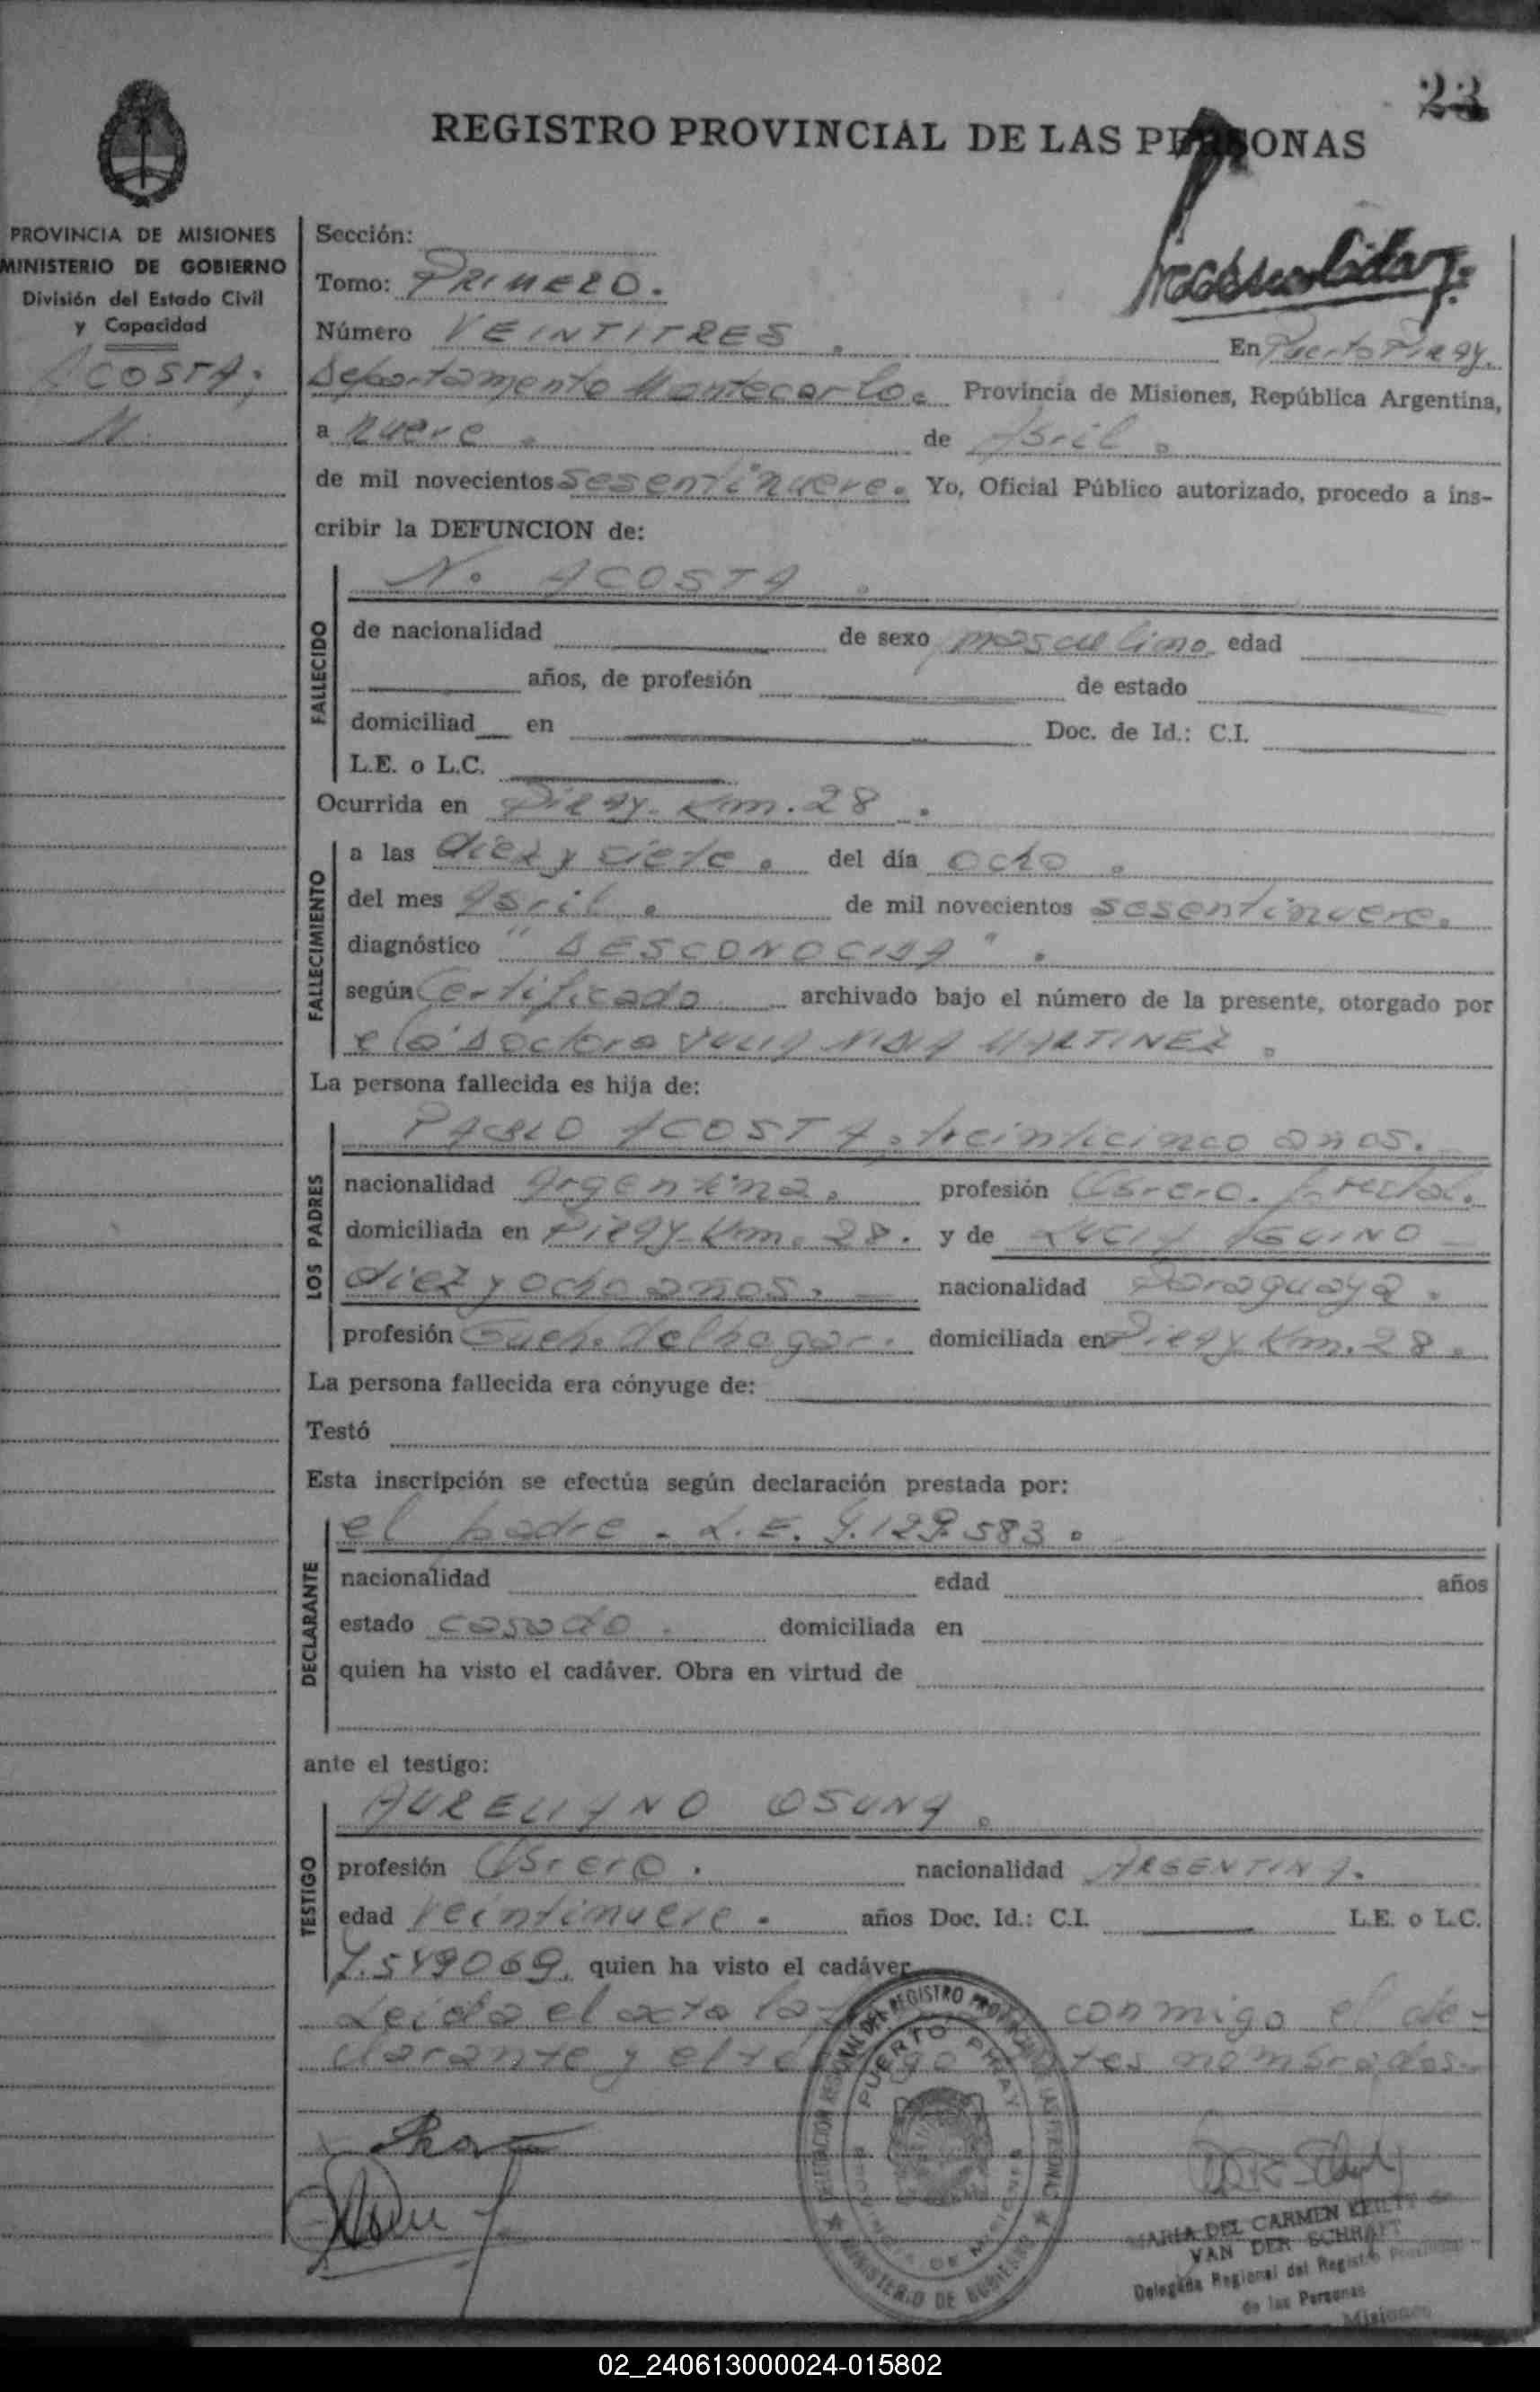 23
REGISTRO PROVINCIAL DE LAS PERSONAS
PROVINCIA DE MISIONES
MINISTERIO DE GOBIERNO
División del Estado Civil
y Capacidad
ACOSTA.
N.
Sección:
Tomo: PRIMERO.
Número VEINTITRES. En Puerto Piray.
Departamento Montecarlo. Provincia de Misiones, República Argentina,
a nueve. de Abril.
de mil novecientos sesentinueve. Yo, Oficial Público autorizado, procedo a ins-
cribir la DEFUNCION de:
N. ACOSTA.
FALLECIDO
de nacionalidad de sexo masculino edad
años, de profesión de estado
domiciliad en Doc. de Id.: C.I.
L.E. o L.C.
Ocurrida en Piray Km. 28.
FALLECIMIENTO
a las diez y siete. del día ocho.
del mes Abril. de mil novecientos sesentinueve.
diagnóstico "DESCONOCIDA".
según Certificado archivado bajo el número de la presente, otorgado por
Doctora MARTINEZ.
La persona fallecida es hija de:
LOS PADRES
PABLO ACOSTA, treinticinco anos.
nacionalidad Argentina. profesión Obrero. Forestal.
domiciliada en Piray Km. 28. y de
diez y ocho anos. nacionalidad Paraguaya.
profesión del hogar. domiciliada en Piray Km. 28.
La persona fallecida era cónyuge de:
Testó
Esta inscripción se efectúa según declaración prestada por:
DECLARANTE
el padre - L.E. 583.
nacionalidad edad años
estado casado. domiciliada en
quien ha visto el cadáver. Obra en virtud de
ante el testigo:
TESTIGO
AURELIANO OSUNA.
profesión Obrero. nacionalidad ARGENTINA.
edad Veintinueve. años Doc. Id.: C.I. L.E. o L.C.
7.549069, quien ha visto el cadáver
Leida el acta la conmigo el de-
clarante y el testigo antes nombrados.
DELEGACION REGIONAL DEL REGISTRO PROVINCIAL DE LAS PERSONAS
PUERTO PIRAY
PROVINCIA DE MISIONES
MINISTERIO DE GOBIERNO
MARIA DEL CARMEN
VAN DER SCHRAFT
Delegada Regional del Registro Provincial
de las Personas
Misiones
02_240613000024-015802